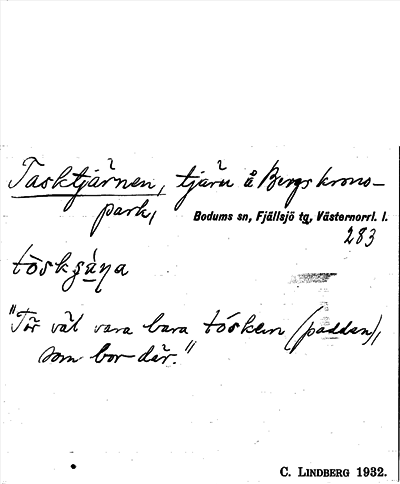 Tasktjärnen, tjärn å Bergs krono-
park,
Bodums sn, Fjällsjö tg, Västernorrl. l.
283
tòskʂá̱ɳa
"Tör väl vara bara tósken (paddan),
som bor där."
C. LINDBERG 1932.